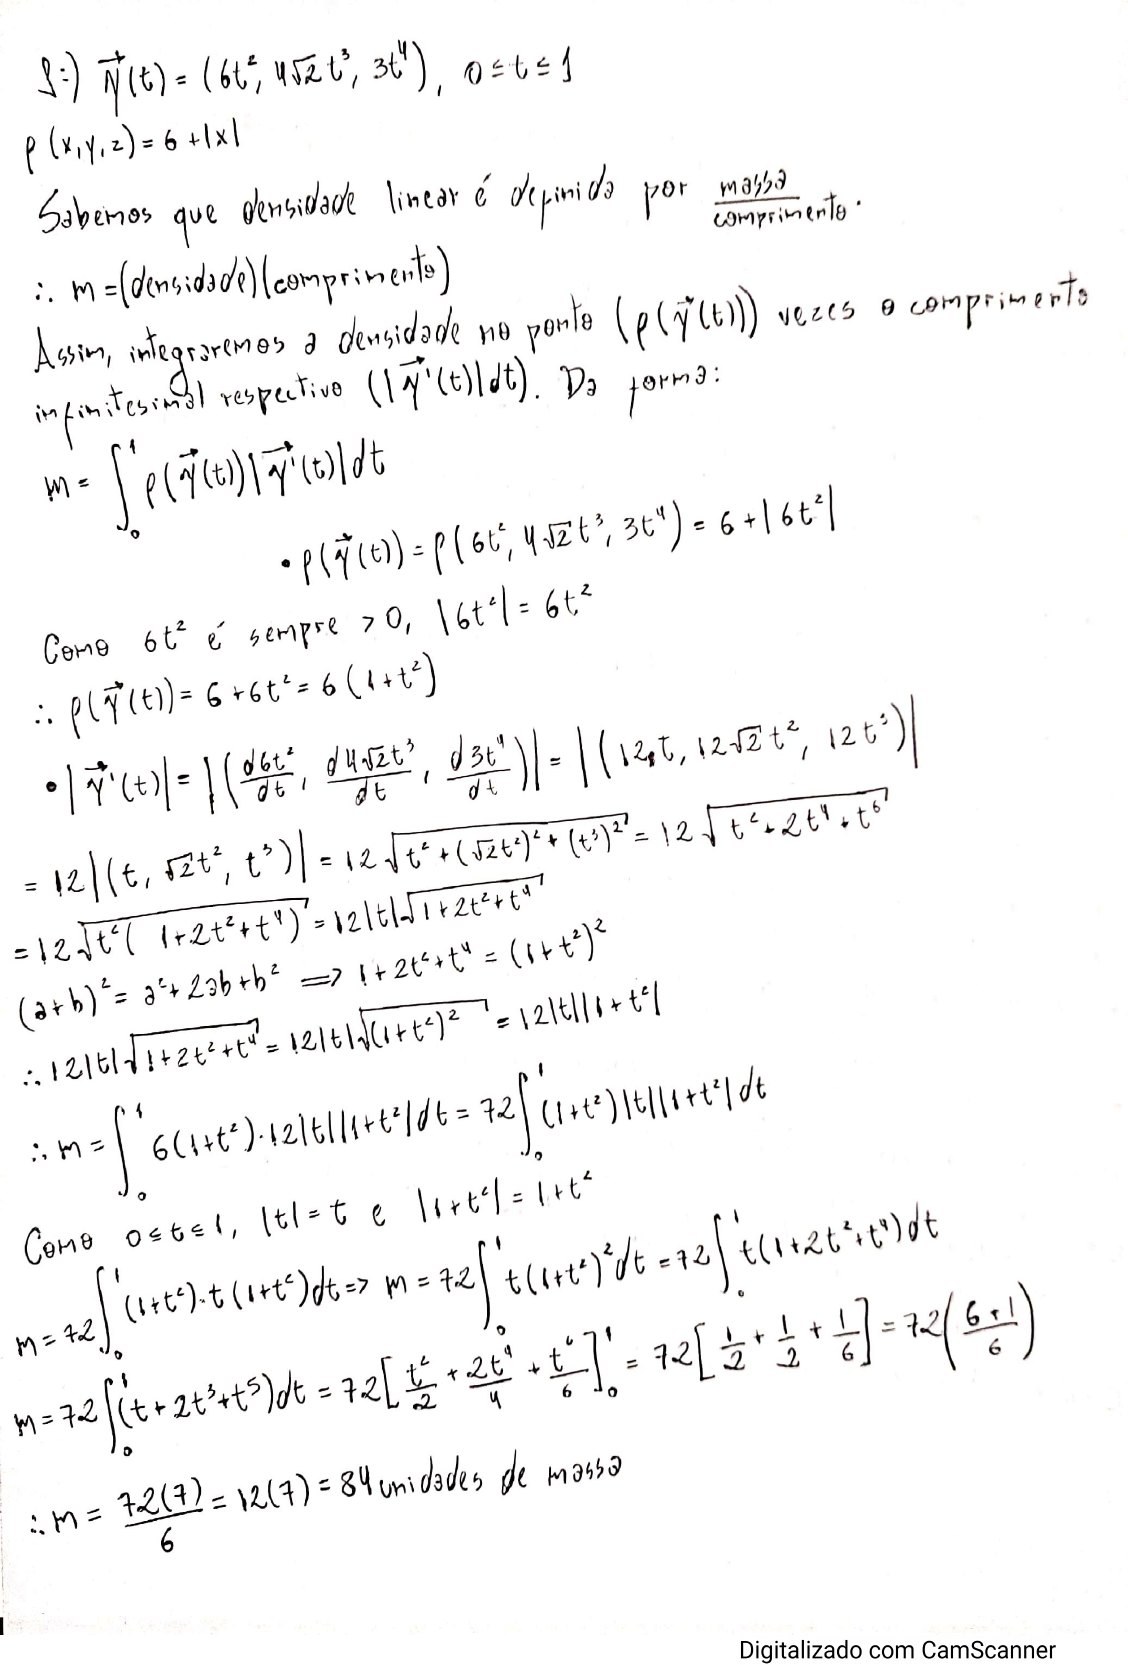 1:) γ⃗(t) = (6t², 4√2 t³, 3t⁴), 0 ≤ t ≤ 1
ρ(x,y,z) = 6 + |x|
Sabemos que densidade linear é definida por massa/comprimento.
∴ m = (densidade)(comprimento)
Assim, integraremos a densidade no ponto (ρ(γ⃗(t))) vezes o comprimento
infinitesimal respectivo (|γ⃗'(t)|dt). Da forma:
m = ∫₀¹ ρ(γ⃗(t))|γ⃗'(t)|dt
• ρ(γ⃗(t)) = ρ(6t², 4√2 t³, 3t⁴) = 6 + |6t²|
Como 6t² é sempre > 0, |6t²| = 6t²
∴ ρ(γ⃗(t)) = 6 + 6t² = 6(1+t²)
• |γ⃗'(t)| = |(d6t²/dt, d4√2t³/dt, d3t⁴/dt)| = |(12t, 12√2 t², 12t³)|
= 12|(t, √2t², t³)| = 12√(t² + (√2t²)² + (t³)²) = 12√(t² + 2t⁴ + t⁶)
= 12√(t²(1+2t²+t⁴)) = 12|t|√(1+2t²+t⁴)
(a+b)² = a² + 2ab + b² ⟹ 1 + 2t² + t⁴ = (1+t²)²
∴ 12|t|√(1+2t²+t⁴) = 12|t|√((1+t²)²) = 12|t||1+t²|
∴ m = ∫₀¹ 6(1+t²)·12|t||1+t²|dt = 72∫₀¹ (1+t²)|t||1+t²|dt
Como 0 ≤ t ≤ 1, |t| = t e |1+t²| = 1+t²
m = 72∫₀¹ (1+t²)·t(1+t²)dt => m = 72∫₀¹ t(1+t²)²dt = 72∫₀¹ t(1+2t²+t⁴)dt
m = 72∫₀¹ (t+2t³+t⁵)dt = 72[t²/2 + 2t⁴/4 + t⁶/6]₀¹ = 72[1/2 + 1/2 + 1/6] = 72((6+1)/6)
∴ m = 72(7)/6 = 12(7) = 84 unidades de massa
Digitalizado com CamScanner